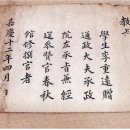 敎旨
學生李重贈
通政大夫承政
院左承旨兼經
筵參贊官春秋
館修撰官者
嘉慶十二年四月 日